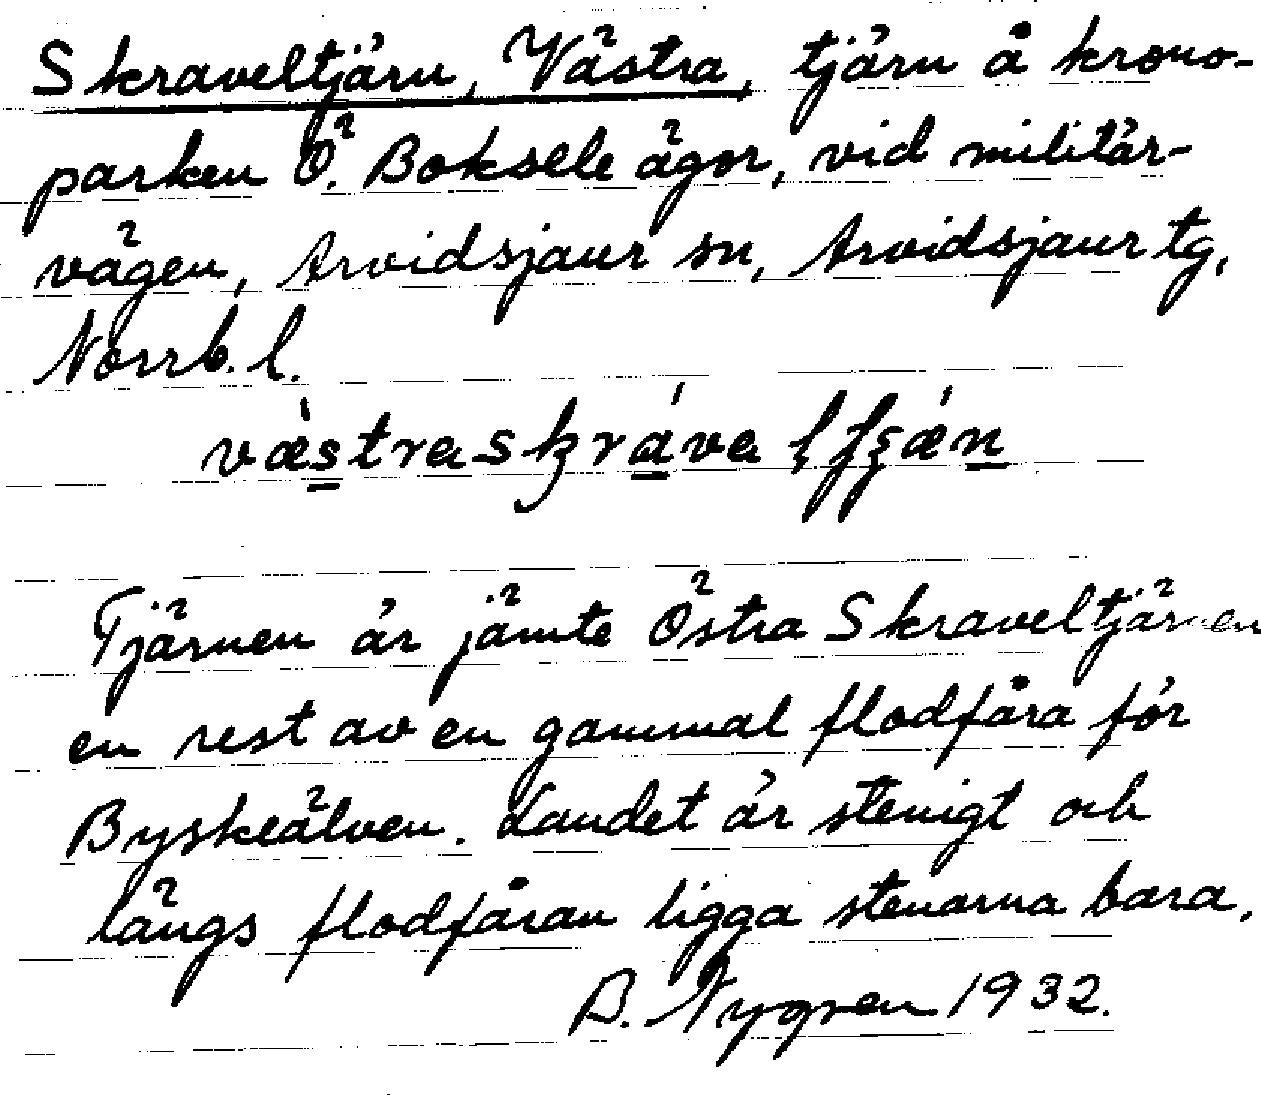 Skraveltjärn, Västra, tjärn å krono-
parken Ö. Boksele ägor, vid militär-
vägen, Arvidsjaur sn, Arvidsjaur tg,
Norrb. l.
Tjärnen är jämte Östra Skraveltjärnen
en rest av en gammal flodfåra för
Byskeälven. Landet är stenigt och
längs flodfåran ligga stenarna bara.
B. Nygren 1932.